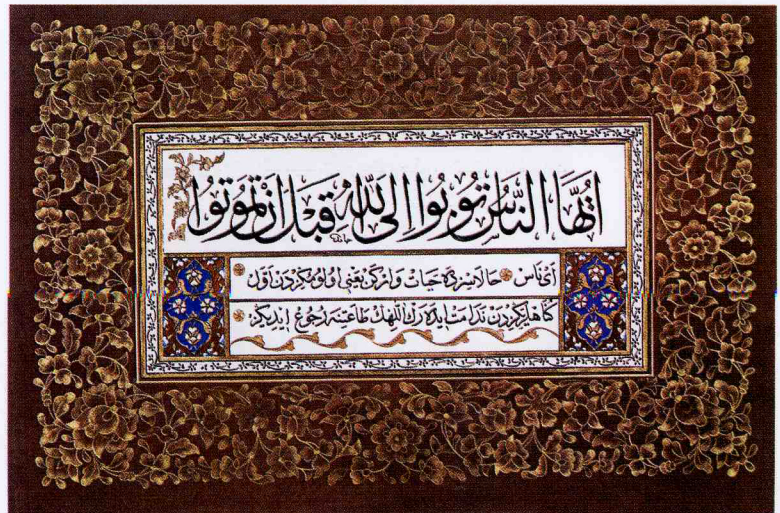 اَيُّهَا النَّاسُ تُوبُوا اِلَى اللّٰهِ قَبْلَ اَنْ تَمُوتُوا
اَیْ نَاسْ حَالَا سِزدَه حَيَاتْ وَارْكَنْ يَعْنِي اُولُومُكِزدَنْ اَوَّلْ
كُنَاهْلَرِكِزدَنْ نَدَامَتْ اِيدَه رَكْ اَللّٰهِكْ طَاعَتِنَه رُجُوعْ اِيدِيكِزْ